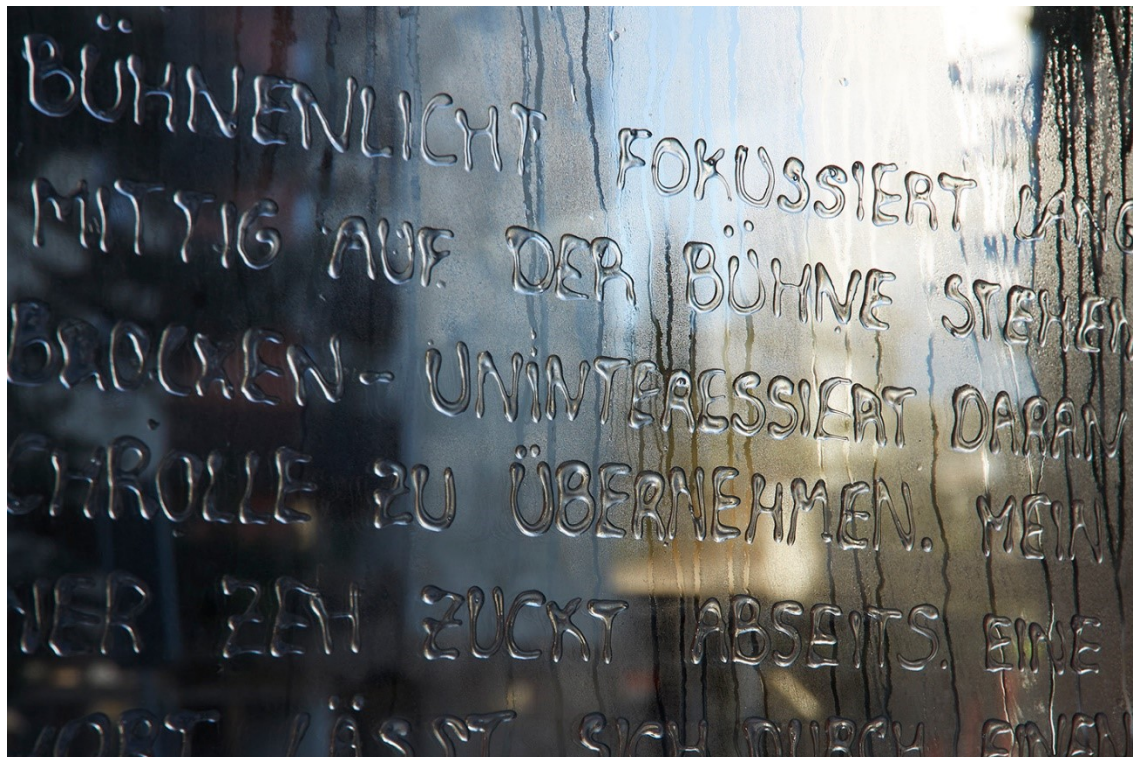 BÜHNENLICHT FOKUSSIERT LANG
MITTIG AUF. DER BÜHNE STEHEN
BROCKEN - UNINTERESSIERT DARAN
CHROLLE ZU ÜBERNEHMEN. MEIN
NER ZEH ZUCKT ABSEITS. EINE
WORT LÄSST SICH DURCH EINEN